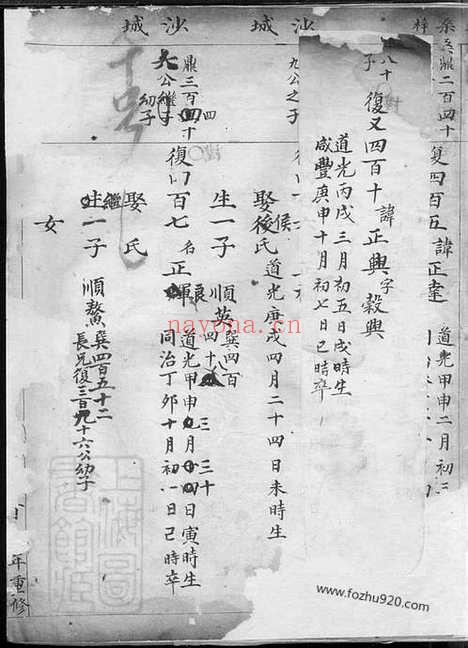 鼎二百四十
復四百五 諱正
道光甲申二月初
八十
子
復又四百十 諱正興 字穀興
道光丙戌三月初五日戌時生
咸豐庚申十月初七日巳時卒
沙城
九公之子
娶後侯氏 道光庚戌四月二十四日未時生
生一子 順英巽四百四十八
沙城
鼎三百四十四
九公繼子
幼子
復四百七 名正
道光甲申三月三十日寅時生
同治丁卯十月初一日巳時卒
娶氏
繼一子 順鰲巽四百五十二
長兄復三百九十六公幼子
女
年重修
nayona.cn
www.fozhu920.com